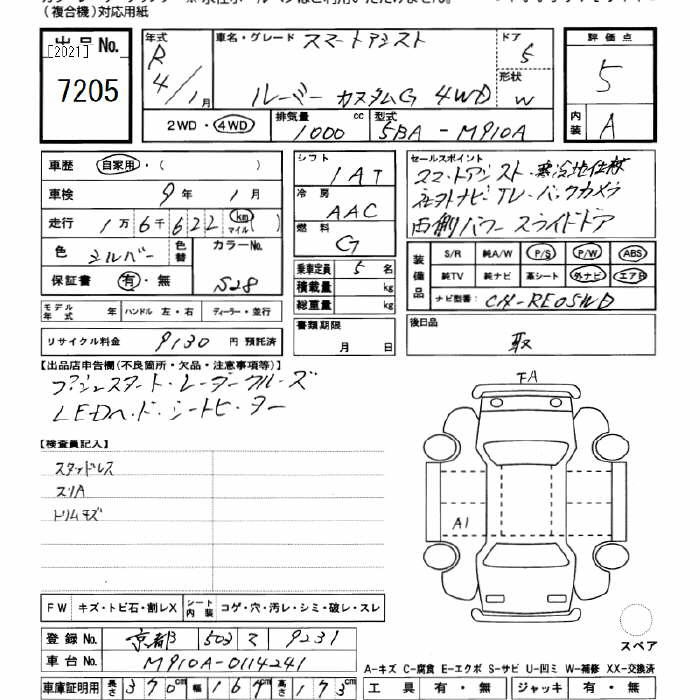 (複合機)対応用紙
出品No. [2021] 7205
年式 R 4/1月
車名・グレード スマートアシスト
ルーミー カスタムG 4WD
ドア 5
形状 W
評価点 5
内装 A
2WD・4WD 排気量 1000 cc 型式 5BA-M910A
車歴 自家用・( )
車検 9年 1月
走行 1万6千622 km マイル
色 シルバー 色替 カラーNo. S28
保証書 有・無
シフト 1AT
冷房 AAC
燃料 G
乗車定員 5名
積載量 kg
総重量 kg
セールスポイント
スマートアシスト・寒冷地仕様
社外ナビTV・バックカメラ
両側パワースライドドア
装備品 S/R 純A/W P/S P/W ABS
純TV 純ナビ 革シート 外ナビ エアB
ナビ型番: CN-RE05WD
モデル年式 年 ハンドル 左・右 ディーラー・並行
リサイクル料金 9130 円 預託済
書類期限 月 日
後日品 取
【出品店申告欄(不良箇所・欠品・注意事項等)】
プッシュスタート・レーダークルーズ
LEDヘッド・シートヒーター
【検査員記入】
スタッドレス
スリA
トリムキズ
FA
A1
FW キズ・トビ石・割レX シート内装 コゲ・穴・汚レ・シミ・破レ・スレ
スペア
登録No. 京都 503 マ 9231
車台No. M910A-0114241
車庫証明用 長さ 370cm 幅 167cm 高さ 173cm
A-キズ C-腐食 E-エクボ S-サビ U-凹ミ W-補修 XX-交換済
工具 有・無 ジャッキ 有・無